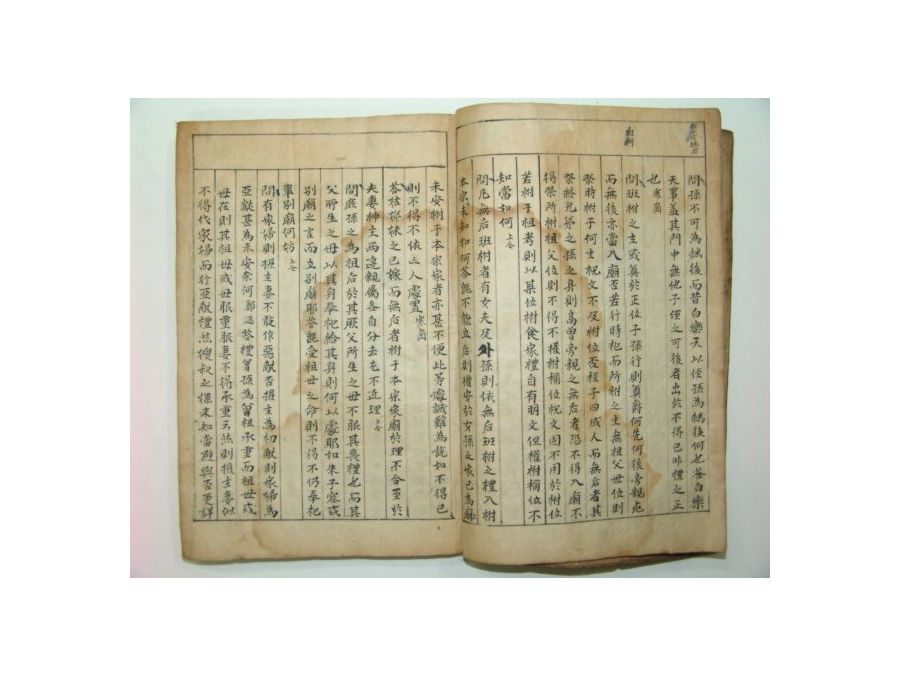 班祔
問孫不可為祖後而昔白樂天以侄孫為後何也答白樂
天事蓋其門中無他子侄之可後者出於不得已非禮之正
也 寒岡
問班祔之主或奠於正位子孫行則奠爵何先何後旁親
而無後亦當入廟否若行時祀而所祔之主無祖父母位則
祭時祔于何主祝文不及祔位否程子曰成人而無后者其
祭終兄弟之孫之身則高曾旁親之無后者恐不得入廟不
得祭所祔祖父位則不得不權祔禰位祝文固不用於祔位
若祔于祖考則以某位祔食家禮自有明文但權祔禰位不
知當如何 上仝
問凡無后班祔者有女夫及外孫則依無后班祔之禮入祔
本家未知如何答旣不能立后則權安於女孫之家已為
未安祔于本宗家者亦甚不便此等處誠難為說如不得已
則不得不依亾人處置 寒岡
答姑姊妹之已嫁而無后者祔于本宗家廟於理不合至於
夫妻神主兩邊親屬各自分去尤不道理 上仝
問庶孫之為祖后於其厥父所生之母不服其喪禮也而其
父所生之母以其身奉祀給其身則何以處耶如朱子容或
別廟之言而立別廟耶答旣受祖母之命則不得不仍奉祀
事別廟何妨 上仝
問有冢婦則攝主妻不敢作亞獻否攝主為初獻則冢婦為
亞獻甚為未安奈何鄭 答禮曾孫為曾祖承重而祖母或
母在則其祖母或母服重服妻不得承重云然則攝主妻似
不得代冢婦而行亞獻禮然嫂叔之嫌未知當避與否更詳